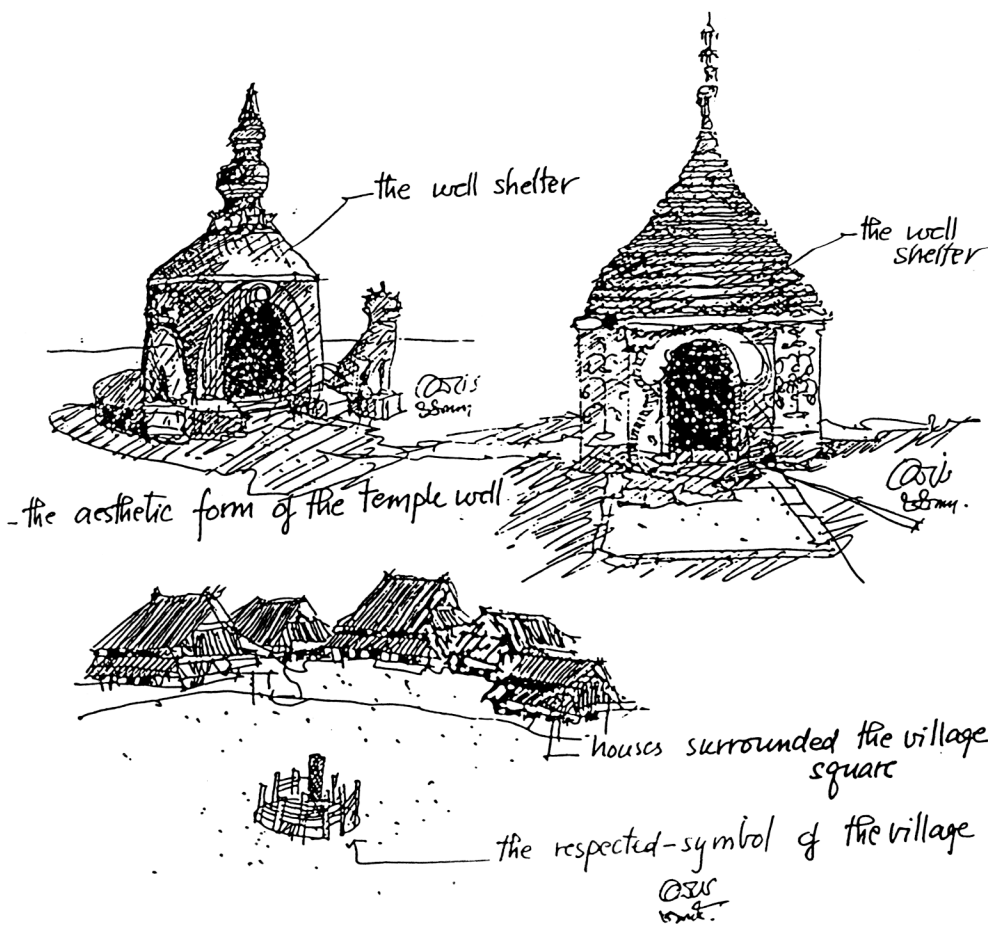 the well shelter
the well
shelter
-the aesthetic form of the temple well
houses surrounded the village
square
the respected-symbol of the village